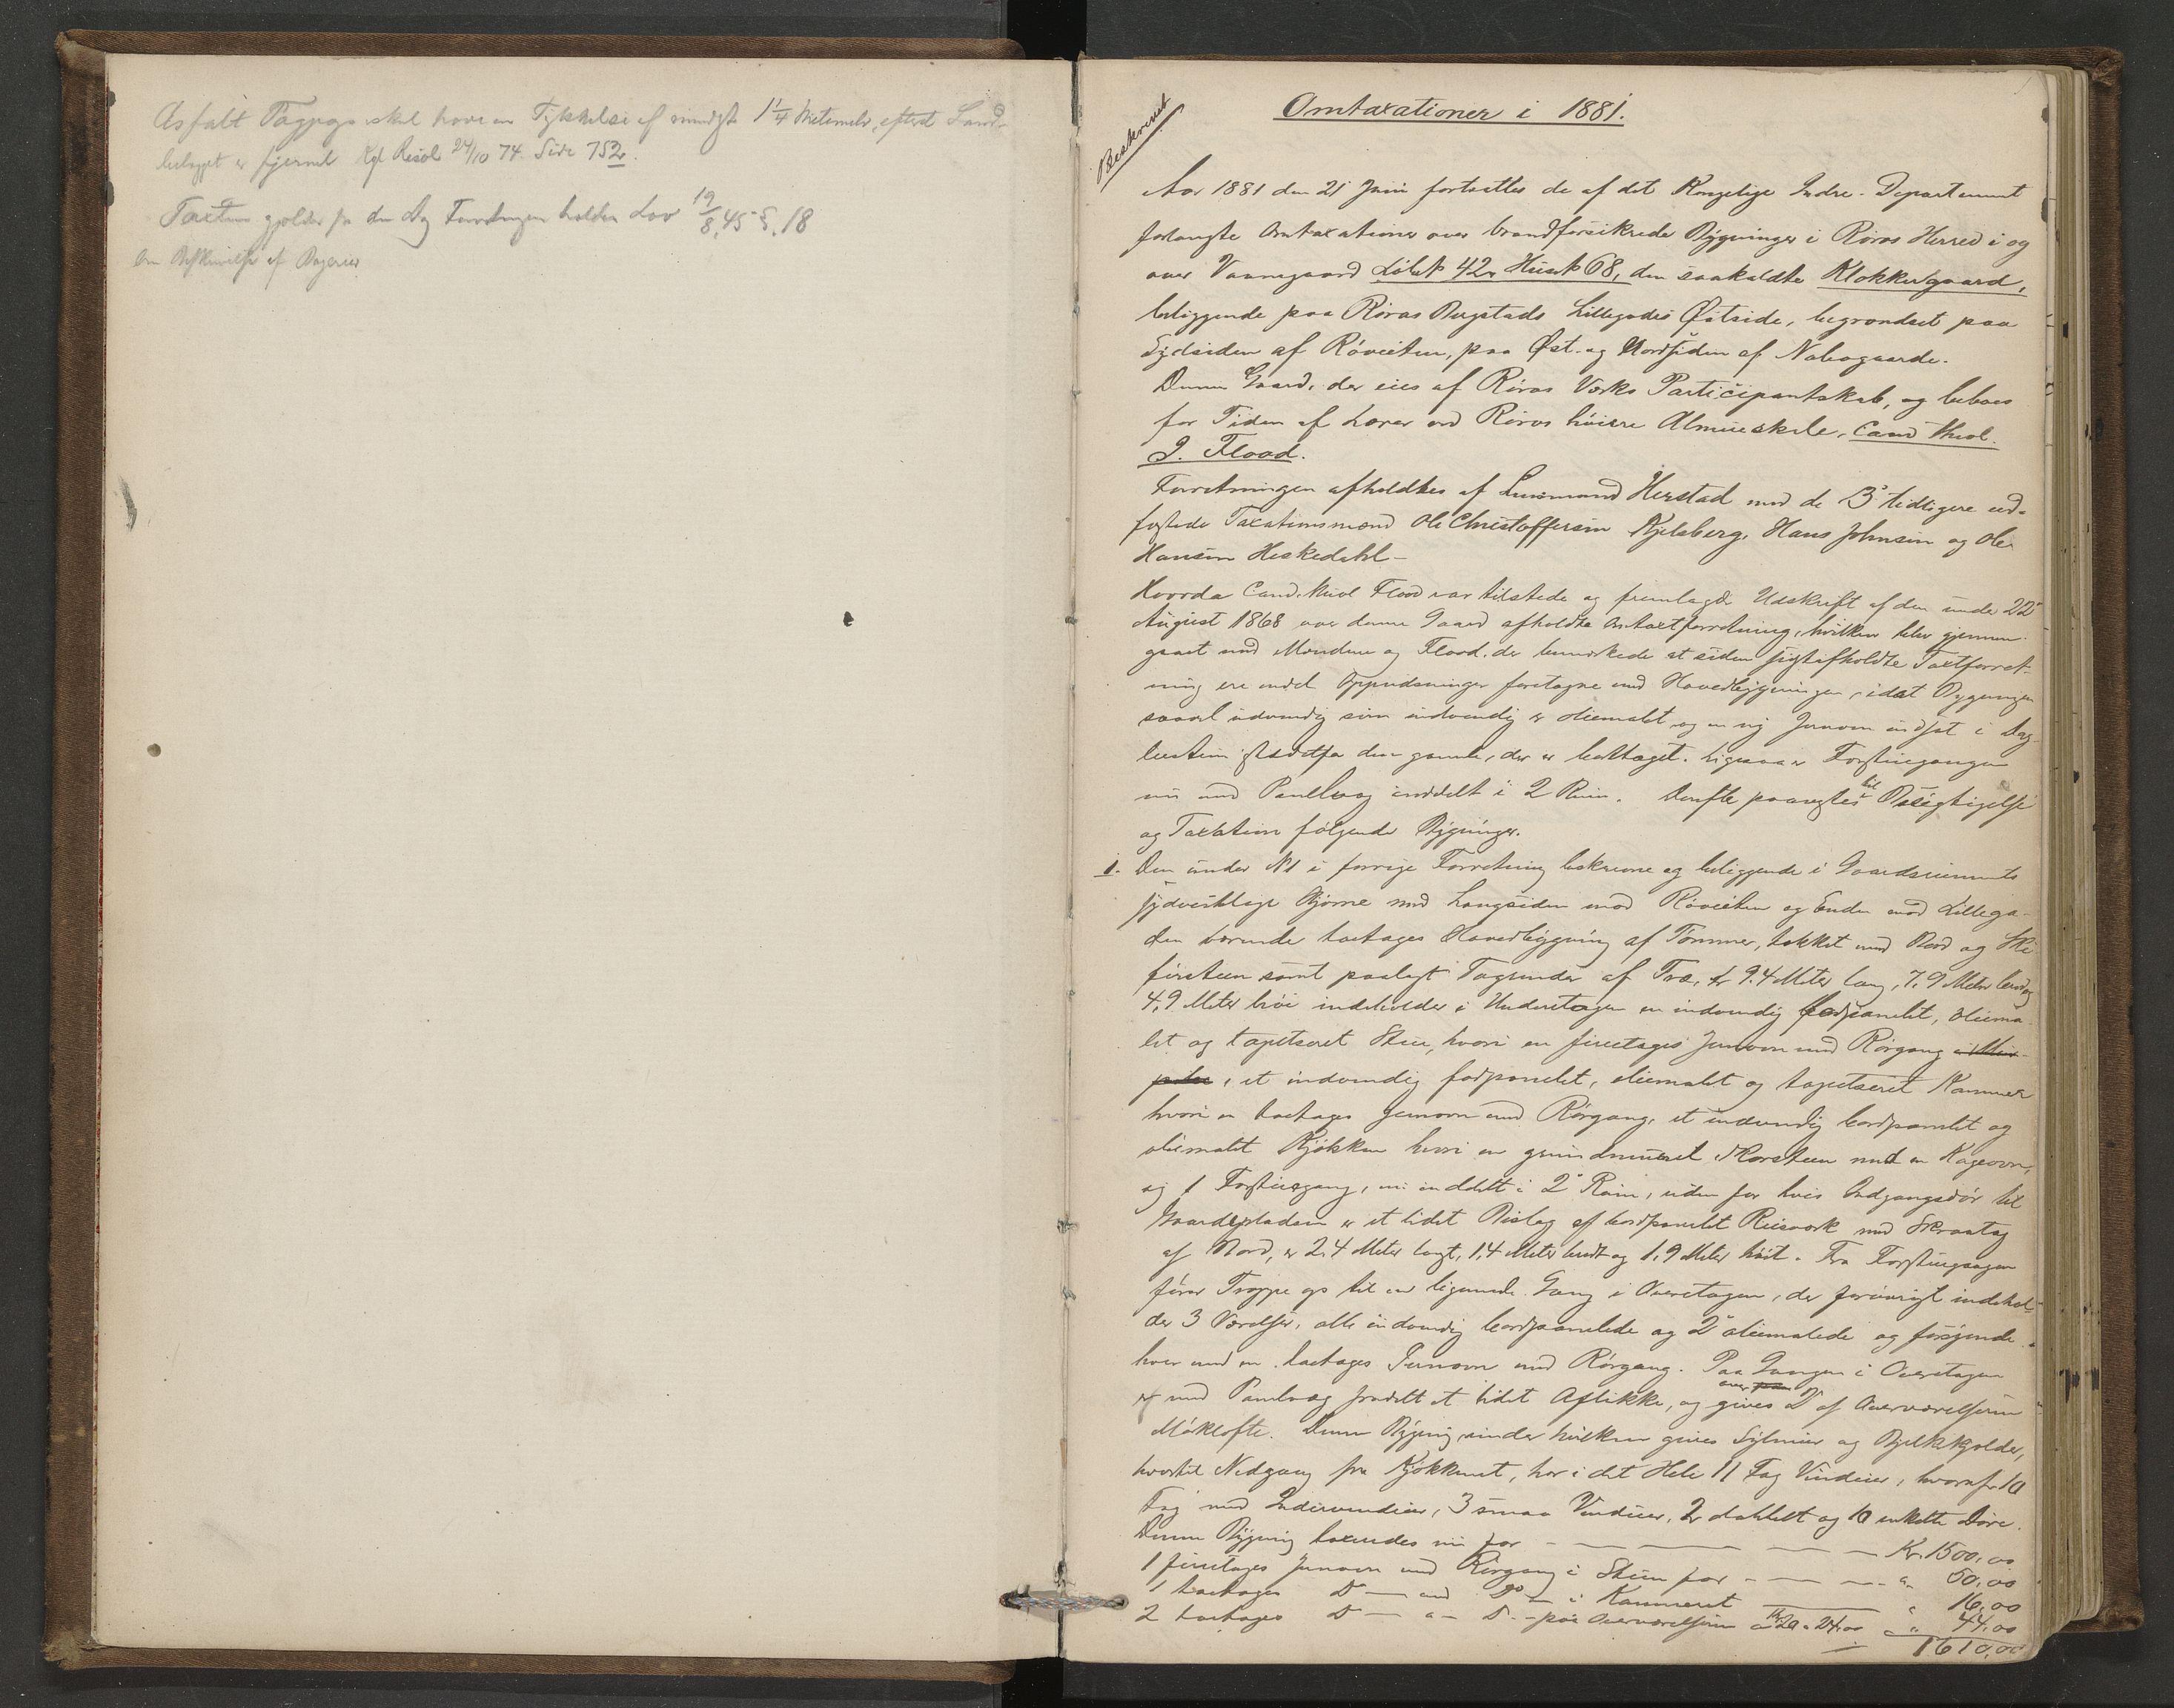 Asfalt Tagpap skal have en Tykkelse af mindst 1 1/4 Millimeter, efterat Sand-
belægget er fjernet Kgl Resol 24/10 74. Side 752.
Taxten gjelder fra den Dag Forretningen holdes Lov 19/8. 45 §. 18
om Beskrivelse af Bagerier
Beskrevet
Omtaxationer i 1881.
Aar 1881 den 21 Juni fortsattes de af det Kongelige Indre-Departement
forlangte Omtaxationer over brandforsikrede Bygninger i Røros Herred i og
over Vaanegaard Løbe№ 42, Hus№ 68, den saakaldte Klokkergaard,
beliggende paa Røros Bergstads Lillegades Østside, begrændset paa
Sydsiden af Røveiten, paa Øst- og Nordsiden af Nabogaarde.
Denne Gaard, der eies af Røros Værks Participantskab, og beboes
for Tiden af Lærer ved Røros høiere Almueskole, Cand theol.
I. Flood.
Forretningen afholdtes af Lensmand Herstad med de 3de tidligere ud-
fæstede Taxationsmænd Ole Christoffersen Kjelsberg, Hans Johnsen og Ole
Hansen Heskedahl –
Hvorda Cand. theol Flood var tilstede og fremlagde Udskrift af den under 22de
August 1868 over denne Gaard afholdte Omtaxtforretning, hvilken blev gjennem-
gaaet med Mændene og Flood, der bemærkede at siden sigtafholdte Taxtforret-
ning ere endel Oppudsninger foretagne med Hovedbygningen, idet Bygningen
saavel udvendig som indvendig er oliemalet og en ny Jernovn indsat i Dag-
ligstuen istedetfor den gamle, der er borttaget. Ligesaa er Forstuegangen
nu med Panelvæg inddelt i 2 Rum. Derefter paavistes til Besigtigelse
og Taxation følgende Bygninger.
1. Den under №1 i forrige Forretning beskrevne og beliggende i Gaardsrummets
sydvestlige Hjørne med Langsiden mod Røveiten og Enden mod Lillega-
den værende toetages Hovedbygning af Tømmer, tækket med Bord og Ski-
fersteen samt paalagt Tagrender af Træ, er 9.4 Meter lang, 7,9 Meter bred og
4,9 Meter høi indeholder i Underetagen en indvendig bordpanelet, oliema-
let og tapetseret Stue, hvori en fireetages Jernovn med Rørgang
, et indvendig bordpanelet, oliemalet og tapetseret Kammer
hvori en toetages Jernovn med Rørgang, et indvendig bordpanelet og
oliemalet Kjøkken hvori en grundmuret Skorsteen med en Kageovn,
og 1 Forstuegang, nu inddelt i 2de Rum, uden for hvis Indgangsdør til
Gaardspladsen er et lidet Bislag af bordpanelet Reisværk med Skraatag
af Bord, er 2,4 Meter langt, 1,4 Meter bredt og 1,9 Meter høit. Fra Forstuegangen
fører Trappe op til en lignende Gang i Overetagen, der forøvrigt indehol-
der 3 Værelser, alle indvendig bordpanelede og 2de oliemalede og forsynede
hver med en toetages Jernovn med Rørgang. Paa Gangen i Overetagen
er med Panelvæg fradelt et lidet Aflukke, og gives over 2de af Overværelserne
Mørklofte. Denne Bygning, under hvilken gives Sylmur og Bjelkekjelder,
hvortil Nedgang fra Kjøkkenet, har i det Hele 11 Fag Vinduer, hvoraf 10
Fag med Indervinduer, 3 smaa Vinduer, 2 dobbelt og 10 enkelte Døre.
Denne Bygning taxeredes nu for – – – – Kr. 1500,00
1 fireetages Jernovn med Rørgang i Stuen for – – – " 50,00
1 toetages Do – med Do – i Kammeret " 16,00
2 toetages Do – " – Do – paa Overværelserne Kr 20 a 24,00 " 44,00
1610,00